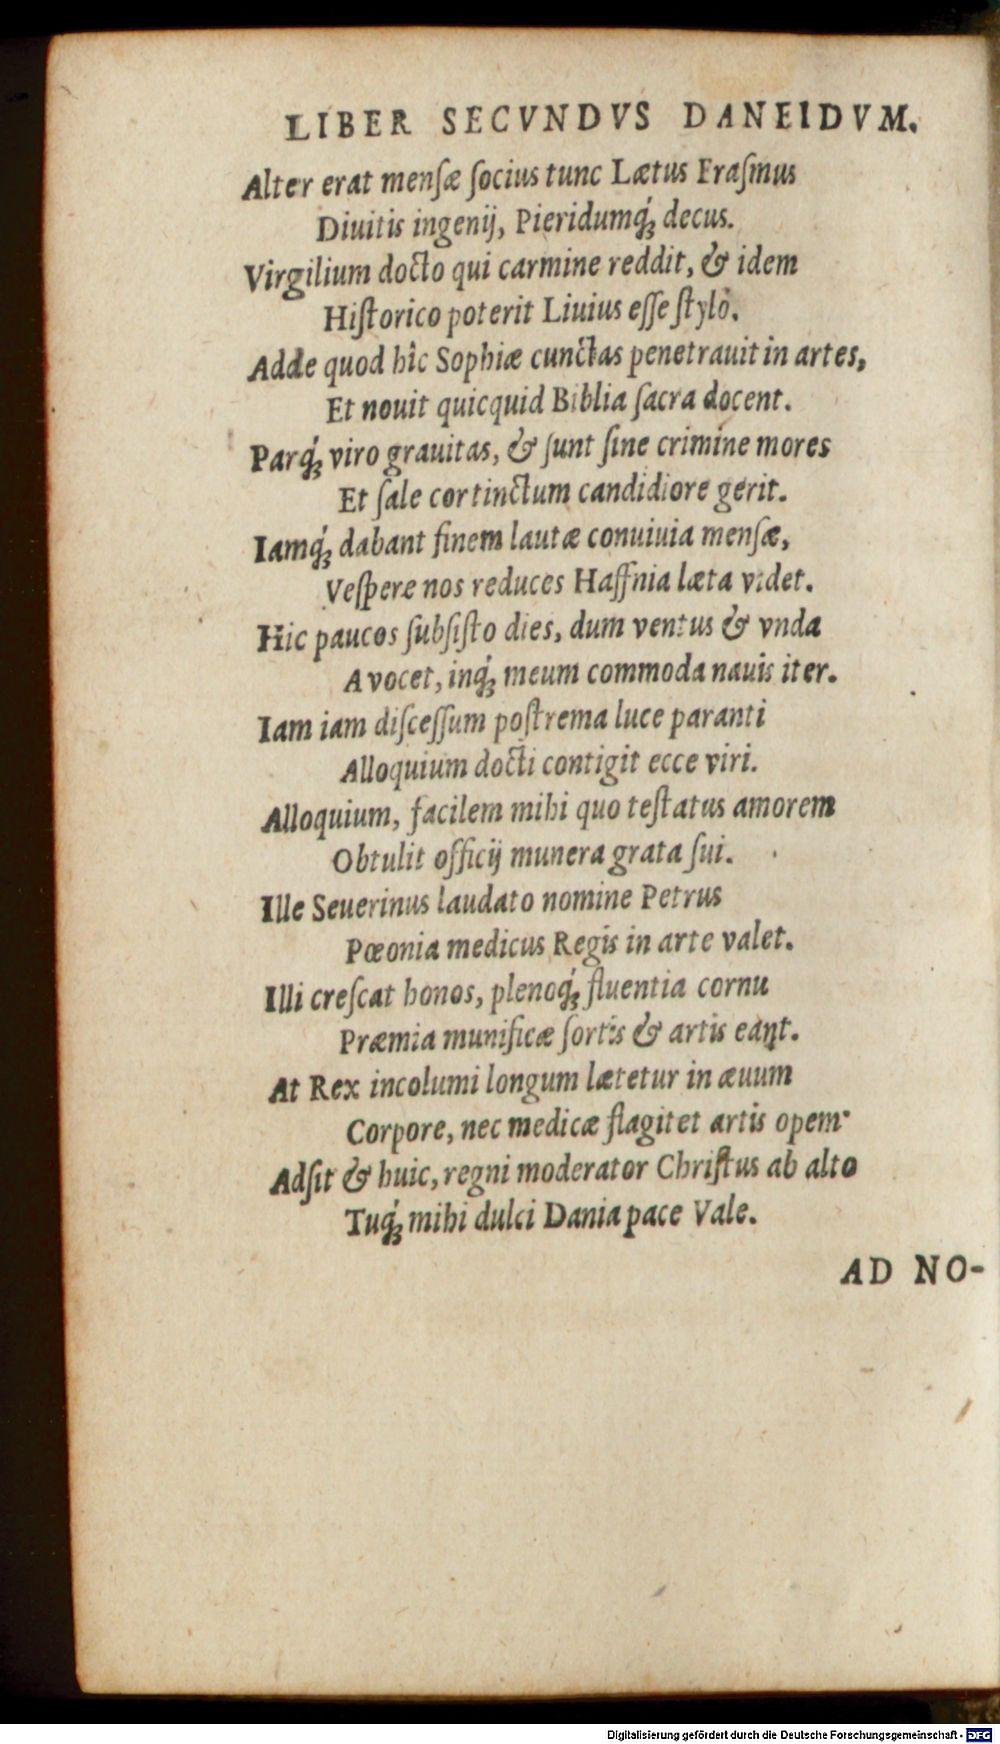 LIBER SECVNDVS DANEIDVM.
Alter erat menſæ ſocius tunc Lætus Eraſmus
Diuitis ingenij, Pieridumq́; decus.
Virgilium docto qui carmine reddit, & idem
Hiſtorico poterit Liuius eſſe ſtylô.
Adde quod hîc Sophiæ cunctas penetrauit in artes,
Et nouit quicquid Biblia ſacra docent.
Parq́; viro grauitas, & ſunt ſine crimine mores
Et ſale cor tinctum candidiore gerit.
Iamq́; dabant finem lautæ conuiuia menſæ,
Veſpere nos reduces Haffnia læta videt.
Hic paucos ſubſiſto dies, dum ventus & vnda
Avocet, inq́; meum commoda nauis iter.
Iam iam diſceſſum poſtrema luce paranti
Alloquium docti contigit ecce viri.
Alloquium, facilem mihi quo teſtatus amorem
Obtulit officij munera grata ſui.
Ille Seuerinus laudato nomine Petrus
Pœonia medicus Regis in arte valet.
Illi creſcat honos, plenoq́; fluentia cornu
Præmia munificæ ſortis & artis eant.
At Rex incolumi longum lætetur in æuum
Corpore, nec medicæ flagitet artis opem.
Adſit & huic, regni moderator Chriſtus ab alto
Tuq́; mihi dulci Dania pace Vale.
AD NO-
Digitalisierung gefördert durch die Deutsche Forschungsgemeinschaft - DFG